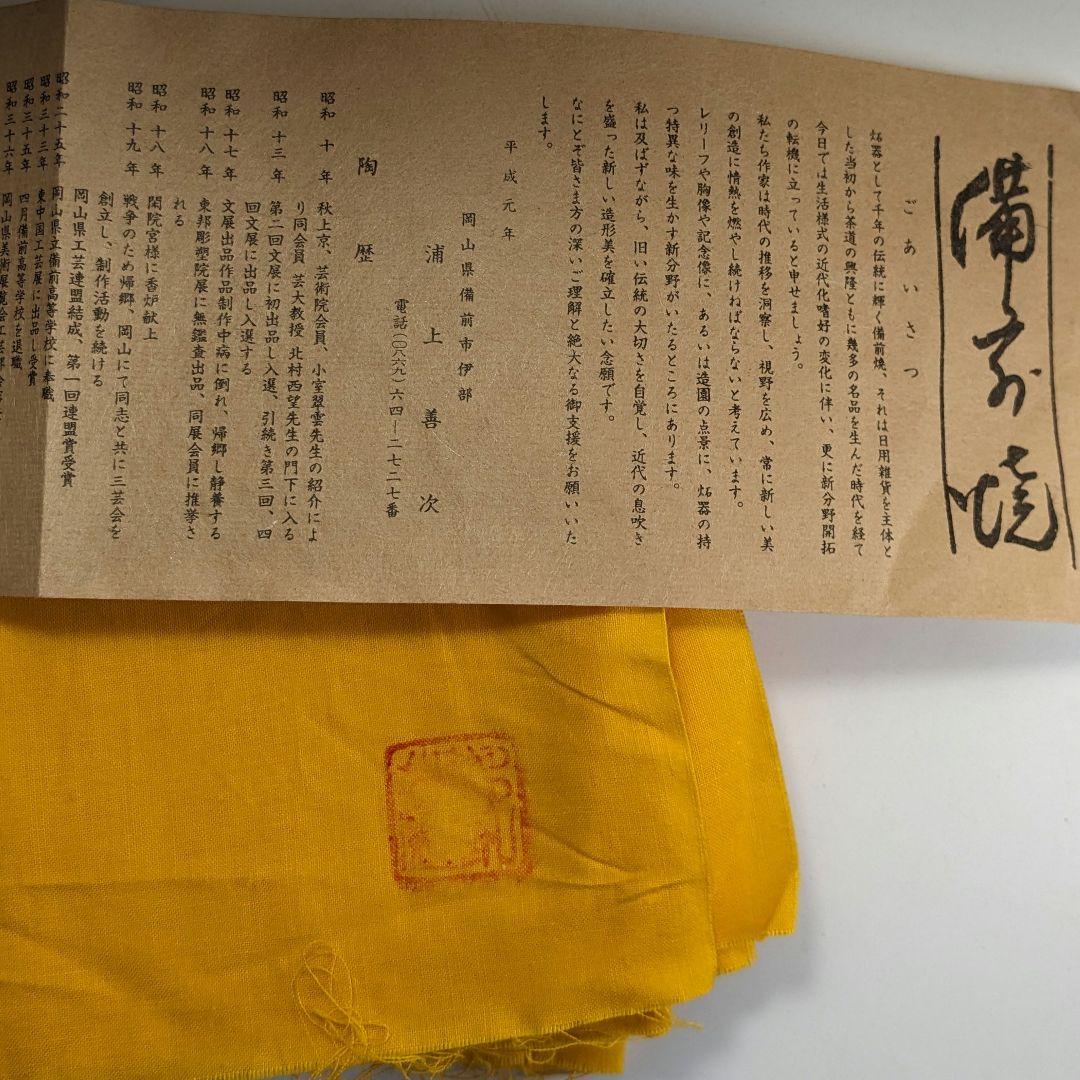 備前焼
ごあいさつ
炻器として千年の伝統に輝く備前焼、それは日用雑貨を主体と
した当初から茶道の興隆とともに幾多の名品を生んだ時代を経て
今日では生活様式の近代化嗜好の変化に伴い、更に新分野開拓
の転機に立っていると申せましょう。
私たち作家は時代の推移を洞察し、視野を広め、常に新しい美
の創造に情熱を燃やし続けねばならないと考えています。
レリーフや胸像や記念像に、あるいは造園の点景に、炻器の持
つ特異な味を生かす新分野がいたるところにあります。
私は及ばずながら、旧い伝統の大切さを自覚し、近代の息吹き
を盛った新しい造形美を確立したい念願です。
なにとぞ皆さま方の深いご理解と絶大なる御支援をお願いいた
します。
平成元年
岡山県備前市伊部
浦上善次
電話(〇八六九)六四―二七二七番
陶歴
昭和十年 秋上京、芸術院会員、小室翠雲先生の紹介によ
り同会員 芸大教授 北村西望先生の門下に入る
昭和十三年 第二回文展に初出品し入選、引続き第三回、四
回文展に出品し入選する
昭和十七年 文展出品作品制作中病に倒れ、帰郷し静養する
昭和十八年 東邦彫塑院展に無鑑査出品、同展会員に推挙さ
れる
昭和十八年 閑院宮様に香炉献上
昭和十九年 戦争のため帰郷、岡山にて同志と共に三芸会を
創立し、制作活動を続ける
岡山県工芸連盟結成、第一回連盟賞受賞
昭和二十五年 岡山県立備前高等学校に奉職
昭和三十三年 東中国工芸展に出品し受賞
昭和三十五年 四月備前高等学校を退職
昭和三十六年 岡山県美術展覧会工芸部